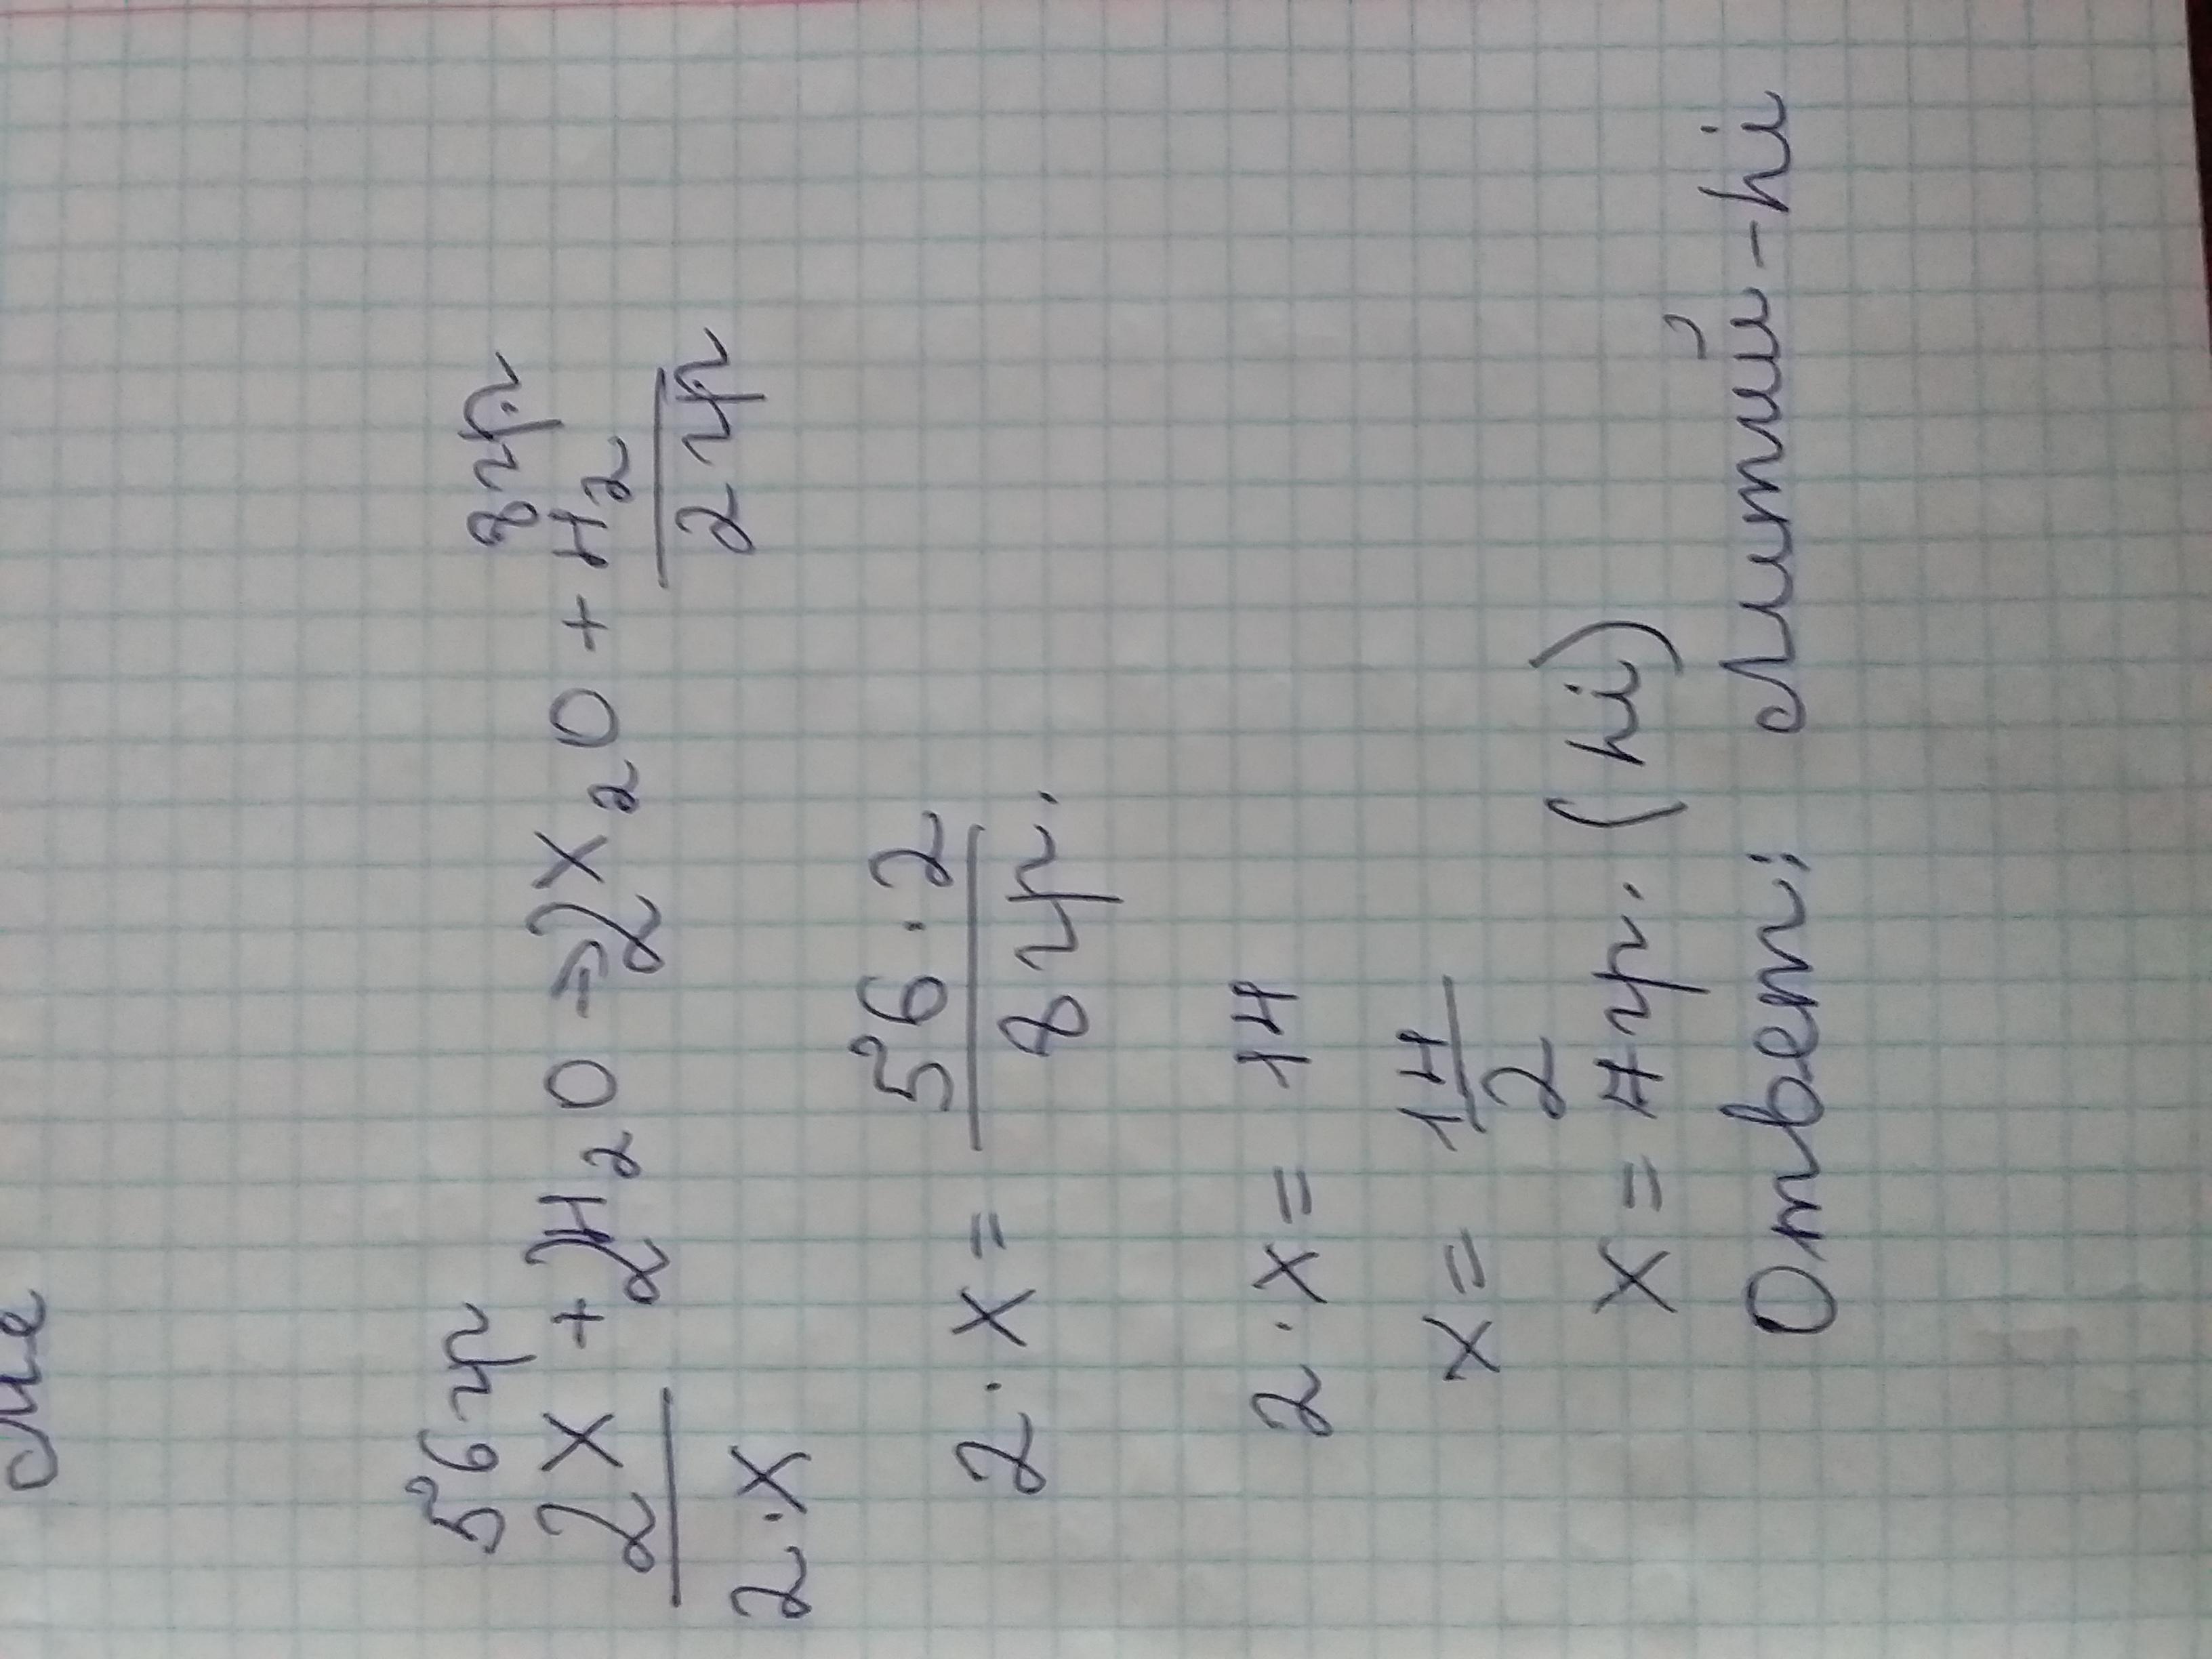 56 гр 8 гр.
2X + 2H₂O → 2X₂O + H₂
2·X 2 гр
2·X = 56·2 / 8 гр.
2·X = 14
X = 14 / 2
X = 7 гр. (Li)
Ответ: Литий - Li